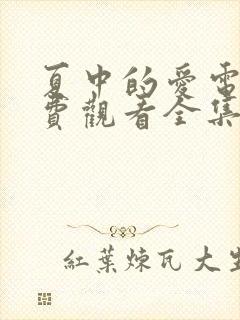 夏中的愛電
費觀看全集
紅葉煉瓦大